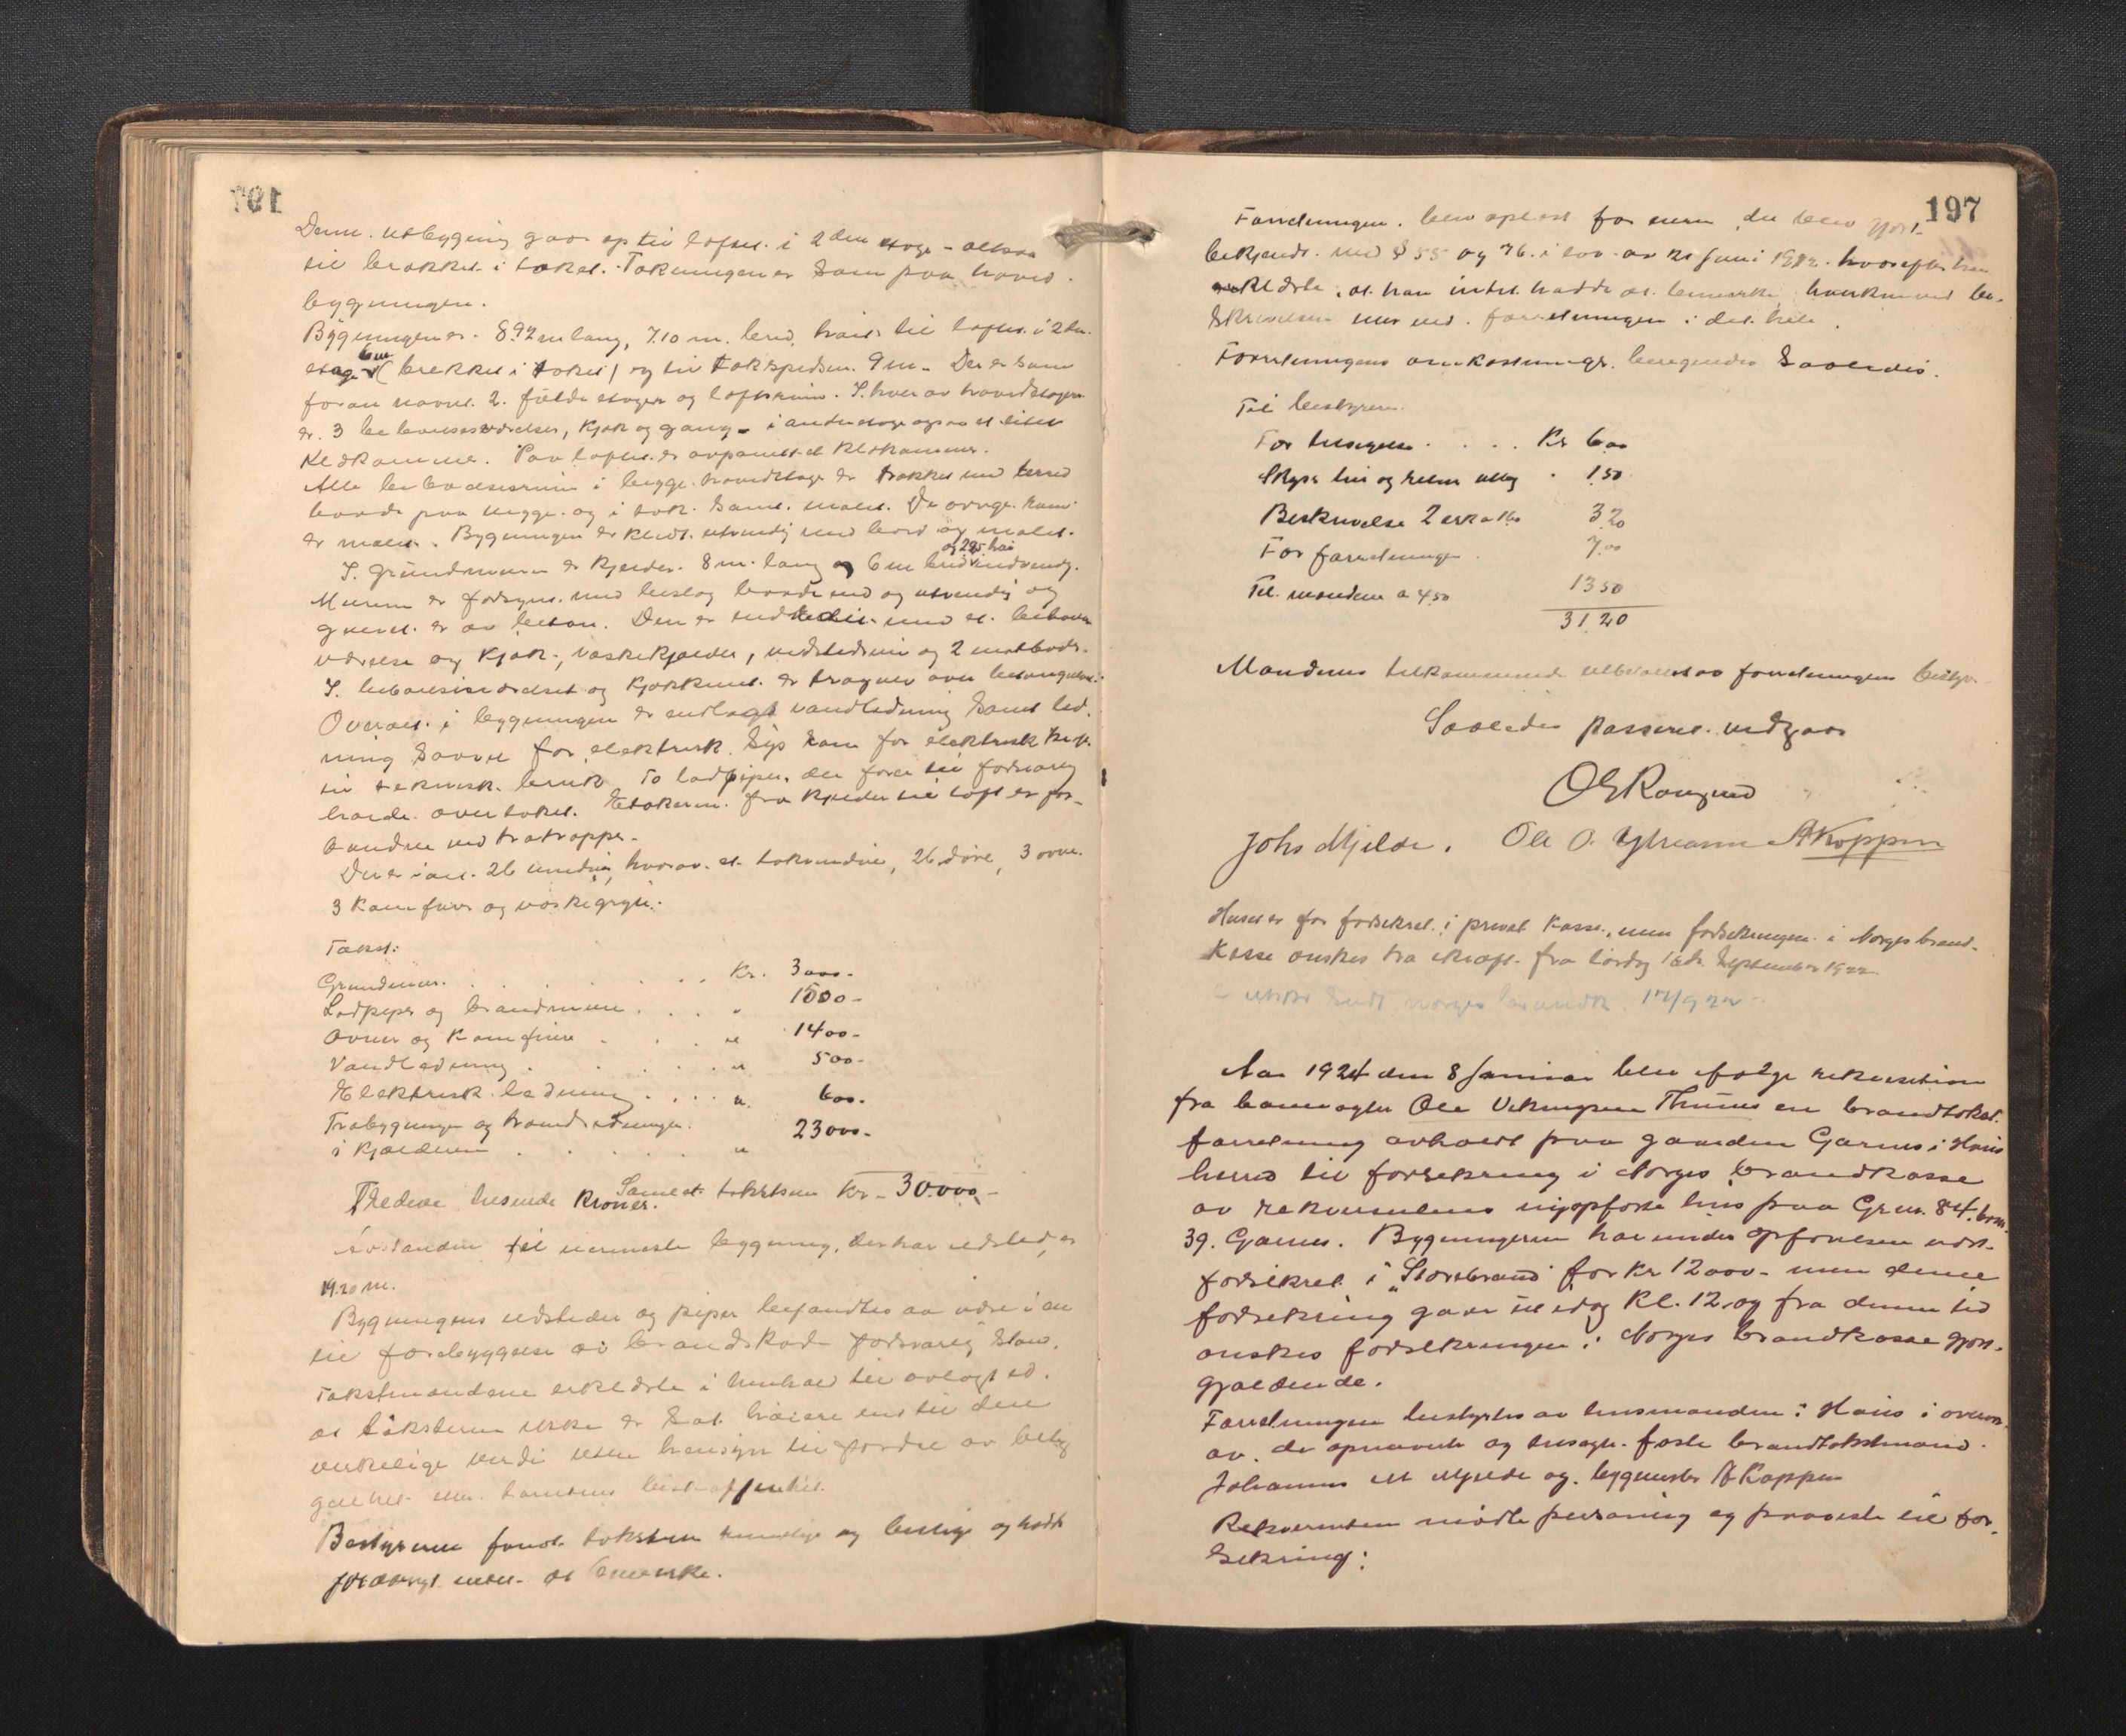 Denne utbygning gaar op til loftet i 2den etage - altsaa
til brækket i taket. Tækningen er som paa hoved-
bygningen.
Bygningen er 8.92 m lang, 7.10 m. bred, høide til loftet i 2den
etage 6 m (brekket i taket) og til takspidsen 9 m. Der er som
foran nævnt 2 fulde etager og loftsrum. I hver av hovedetagene
er 3 beboelsesværelser, kjøk og gang - i anden etage ogsaa et litet
klædkammer. Paa loftet er avpanelet et klækammer.
Alle beboelsesrum i begge hovedetager er trukket med
paa vægge og i tak samt malet. De øvrige rum
er malet. Bygningen er klædt utvendig med bord og malet.
I grundmuren er kjelder 8 m. lang og 6 m bred og 2.25 høi indvendig.
Muren er forsynt med beslag baade ind og utvendig og
gulvet er av beton. Den er inddelt med et beboelses
værelse og kjøk-, vaskekjælder, vedskedrum og 2 matboder.
I beboelsesværelset og kjøkkenet er trægulv over betongulvet.
Overalt i bygningen er indlagt vandledning samt led-
ning saavel for elektrisk lys som for elektrisk kraft
til teknisk bruk. To ladpiper, der fører til forsvarlig
høide over taket. Etagerne fra kjelder til loft er for-
bundne ved trætrapper.
Der er ialt 26 vinduer, hvorav et takvindue, 26 døre, 3 ovne
3 kamfuer og vaskegryte.
Takst:
Grundmur . . . . . . Kr. 3000 -
Ladpiper og brandmure . . . " 1500 -
Ovner og kamfuer . . . " 1400 -
Vandledning . . . . . " 500 -
Elektrisk ledning . . . . " 600 -
Træbygningen og træindredninger
i kjælderen . . . . . " 23000 -
Samlet takstsum kr - 30.000 -
Tredeve tusende kroner.
Avstanden til nærmeste bygning, der har ildsted, er
19.20 m.
Bygningens ildsteder og piper befandtes at være i en
til forebyggelse av brandskade forsvarlig stand.
Takstmændene erklærte i henhold til avlagt ed
at taksten ikke er sat høiere end til den
virkelige verdi uten hensyn til fordel av belig
genhet eller tomtens beskaffenhet.
Bestyreren fandt taksten rimelige og billige og hadde
forøvrigt intet at bemerke.
197
Forretningen blev oplæst for eieren, der blev gjort
bekjendt med § 55 og 76 i lov av 21 juni 1912, hvorefter han
erklærte, at han intet hadde at bemerke hverken ved be-
skrivelsen eller ved forretningen i det hele.
Forretningens omkostninger beregnedes saaledes.
Til bestyreren
For berammelse . . . . Kr 6.00
Skyss frem og retur utlæg " 1.50
Beskrivelse 2 eks a 1.60 3.20
For forretningen . 7.00
Til mændene a 4.50 13.50
31.20
Mændenes tilkommende utbetaltes av forretningens bestyr-
Saaledes passeret vedgaar
Johs Mjelde. Ole O. A Koppen
Huset er før forsikret i privat kasse, men forsikringen i Norges brand-
kasse ønskes tra i kraft fra lørdag 16de September 1922
utskr sendt Norges brandk. 17/9 22
Aar 1924 den 8 Januar blev ifølge rekvisition
fra banevogter Ole Thunes en brandtakst
forretning avholdt paa gaarden Garnes i Haus
herred til forsikring i Norges brandkasse
av rekvirentens nyopførte hus paa Grnr. 84. brnr.
39. Garnes. Bygningen har under opførelsen vært
forsikret i "Storebrand" for kr 12000 - men denne
forsikring gaar ut idag kl. 12, og fra denne tid
ønskes forsikringen i Norges brandkasse gjort
gjældende.
Forretningen bestyrtes av lensmanden i Haus i overvær
av de opnævnte og faste brandtakstmænd
Johannes M Mjelde og bygmester A Koppen
Rekvirenten møtte personlig og paaviste til for-
sikring: